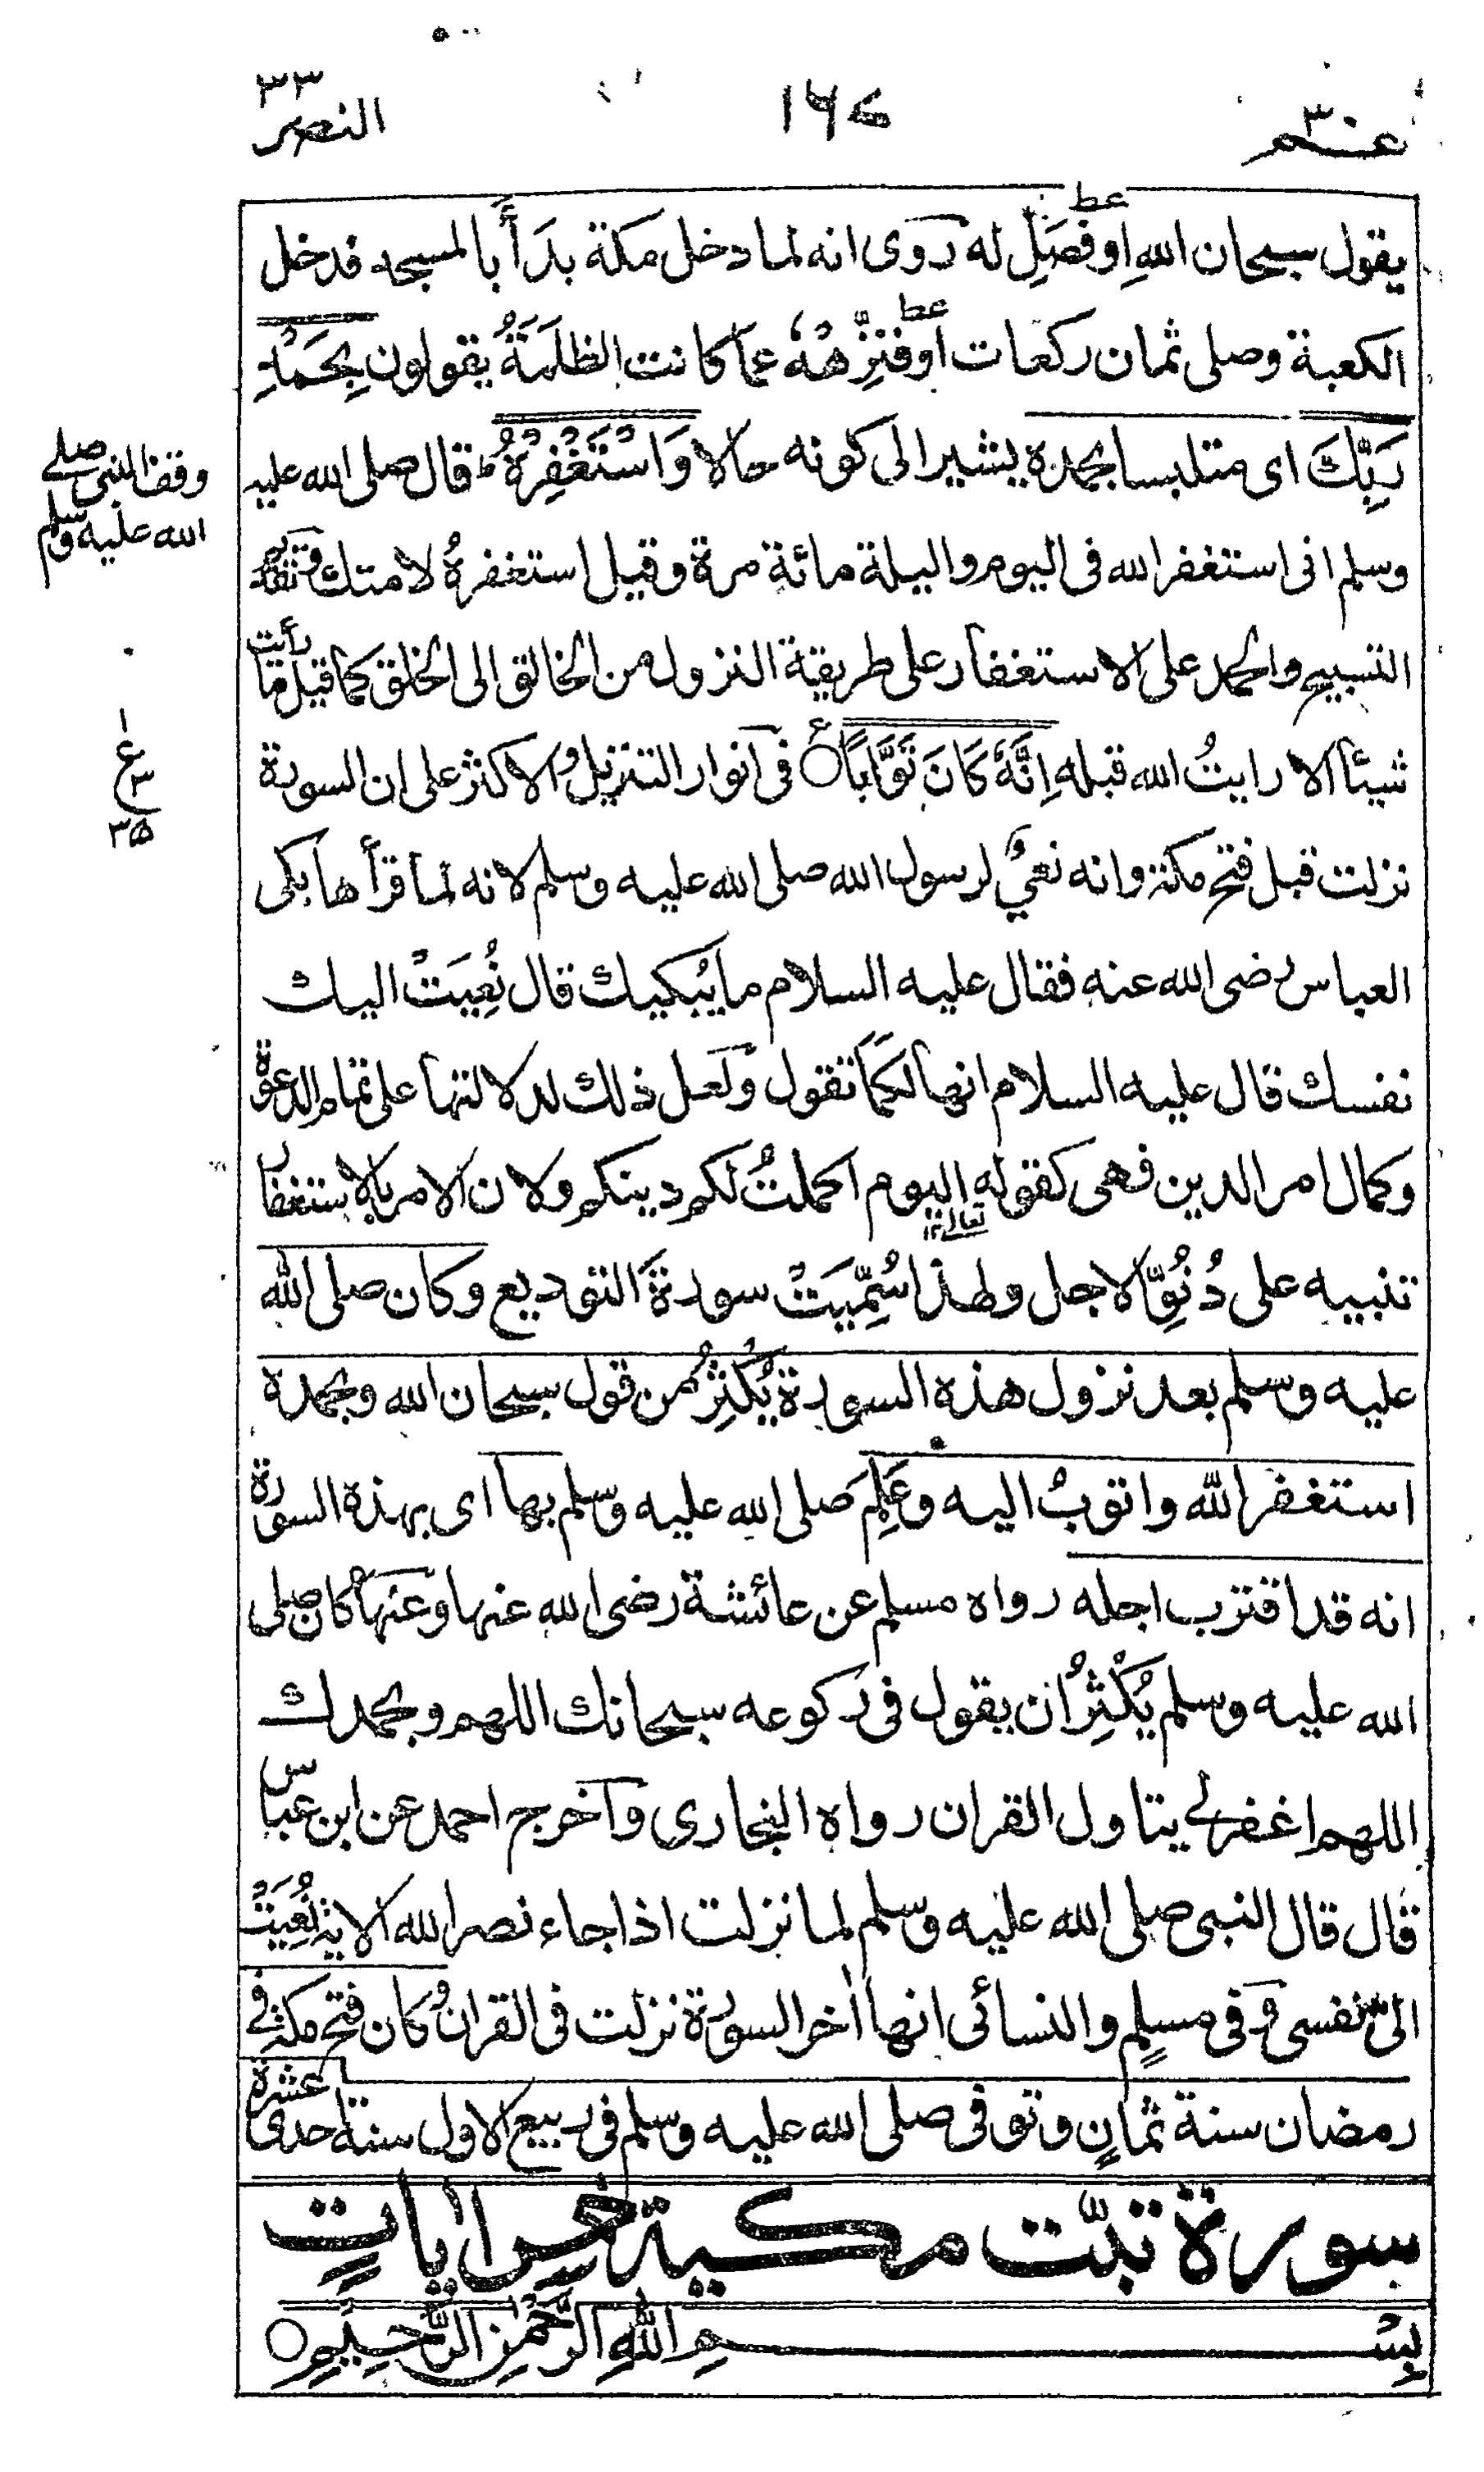 عـم ٣٠
١٦٧
النصر ٣٣
يقول سبحان اللهِ اوفصَلِّ له روى انه لما دخل مكة بدَأَ بالمسجد فدخل
عط
الكعبة وصلى ثمان ركعات اوفنزِّهْهُ عما كانت الظلمَةُ يقولون بِحَمْدِ
عط
رَبِّكَ اى متلبسا بحمده يشير الى كونه حالا وَاسْتَغْفِرْهُ ط قال صلى الله عليه
وسلم انى استغفر الله فى اليوم والليلة مائة مرة وقيل استغفرهُ لامتك وتقديم
التسبيح والحمد على الاستغفار على طريقة النزول من الخالق الى الخلق كما قيل ما رأيت
شيئا الا رايتُ الله قبله اِنَّهٗ كَانَ تَوَّابًا ع فى انوار التنزيل والاكثر على ان السورة
نزلت قبل فتح مكة وانه نعىٌ لرسول الله صلى الله عليه وسلم لانه لما قرأها بكى
العباس رضى الله عنه فقال عليه السلام ما يُبكيك قال نُعِيَتْ اليك
نفسك قال عليه السلام انها لَكَمَا تقول ولعل ذلك لدلالتها على تمام الدعوة
وكمال امر الدين فهى كقوله اليوم اكملتُ لكم دينكم ولان الامر بالاستغفار
تعالى ١٢
تنبيه على دُنُوِّ الاجل ولهذا سُمِّيَتْ سورةَ التوديع وكان صلى الله
عليه وسلم بعد نزول هذه السورة يُكْثِرُ من قول سبحان الله وبحمده
استغفر الله واتوبُ اليه وعَلِمَ صلى الله عليه وسلم بها اى بهذه السورة
انه قد اقترب اجله رواه مسلم عن عائشة رضى الله عنها وعنها كان صلى
الله عليه وسلم يُكْثِرُ ان يقول فى ركوعه سبحانك اللهم وبحمدك
اللهم اغفرلى يتاول القران رواه البخارى واخرج احمد عن ابن عباس
قال قال النبى صلى الله عليه وسلم لما نزلت اذا جاء نصر الله الاية نُعِيَتْ
الىَّ نفسى وفى مسلمٍ والنسائى انها اٰخر السورة نزلت فى القران وكان فتح مكة فى
رمضان سنة ثمانٍ وتوفى صلى الله عليه وسلم فى ربيع الاول سنة احدى عشرة
سورة تبّت مكية خمس اٰياتٍ
بِسْمِ اللهِ الرَّحْمٰنِ الرَّحِيْمِ
وقف النبى صلى
الله عليه وسلم
١
ع
٣
٣٥